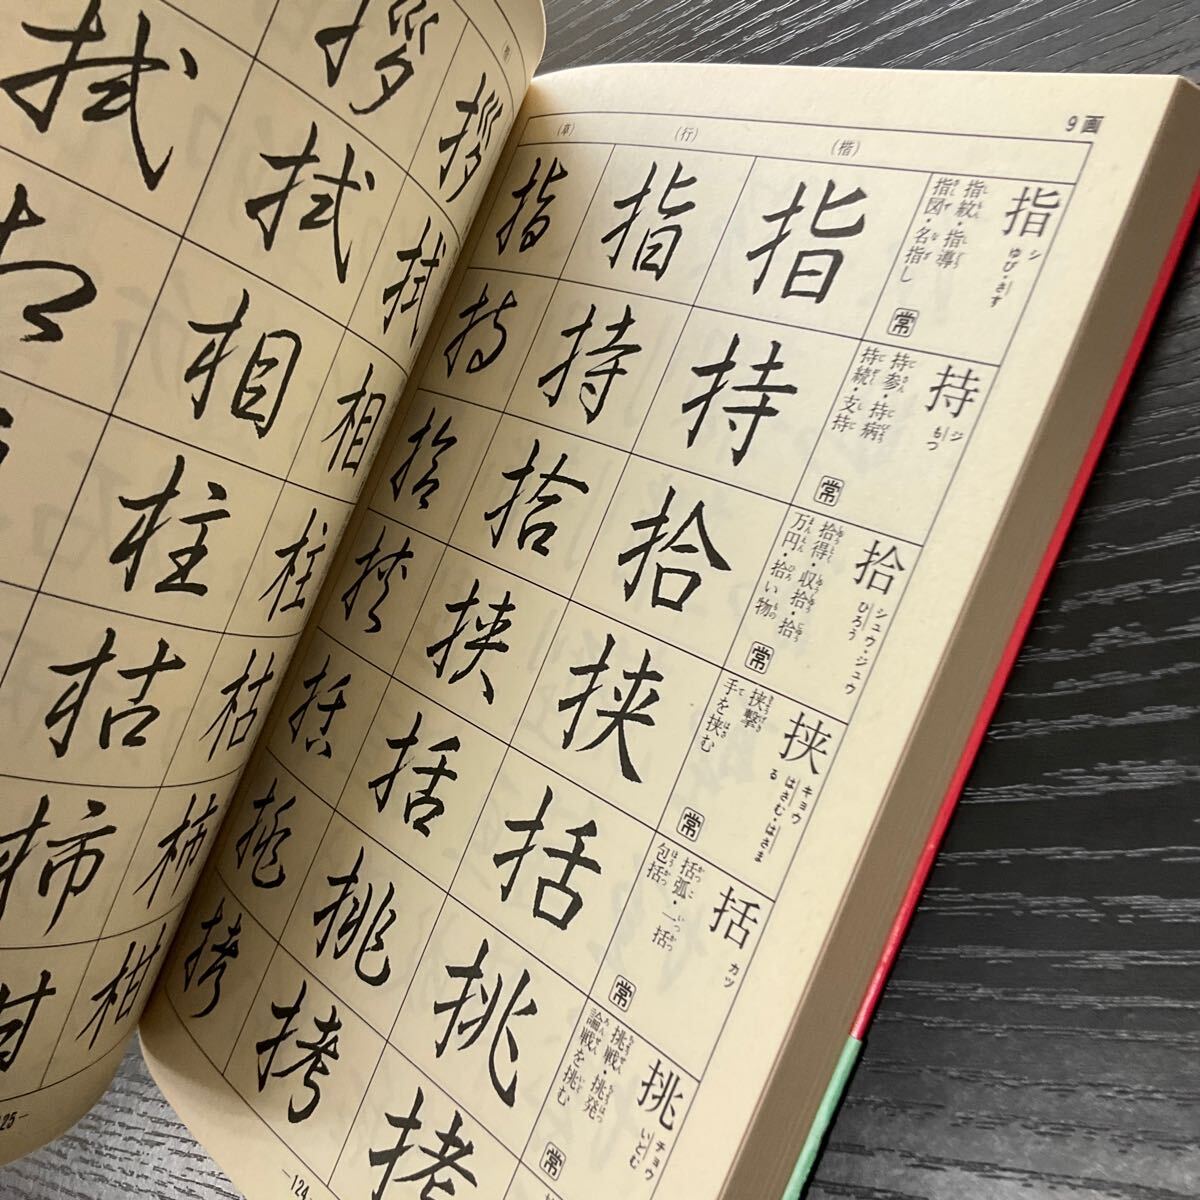 9画
(楷)
(行)
(草)
指
シ
ゆび・さす
指紋・指導
指図・名指し
常
指
指
指
持
ジ
もつ
持参・持病
持続・支持
常
持
持
持
拾
シュウ・ジュウ
ひろう
拾得・収拾・拾
万円・拾い物
常
拾
拾
拾
挟
キョウ
はさむ・はさま
る
挟撃
手を挟む
常
挟
挟
挟
括
カツ
括弧・一括
包括
常
括
括
括
挑
チョウ
いどむ
挑戦・挑発
論戦を挑む
常
挑
挑
挑
拷
拷
拷
-124-
挨
挨
拭
拭
拭
相
相
柱
柱
枯
枯
柿
柿
柑
柑
25-